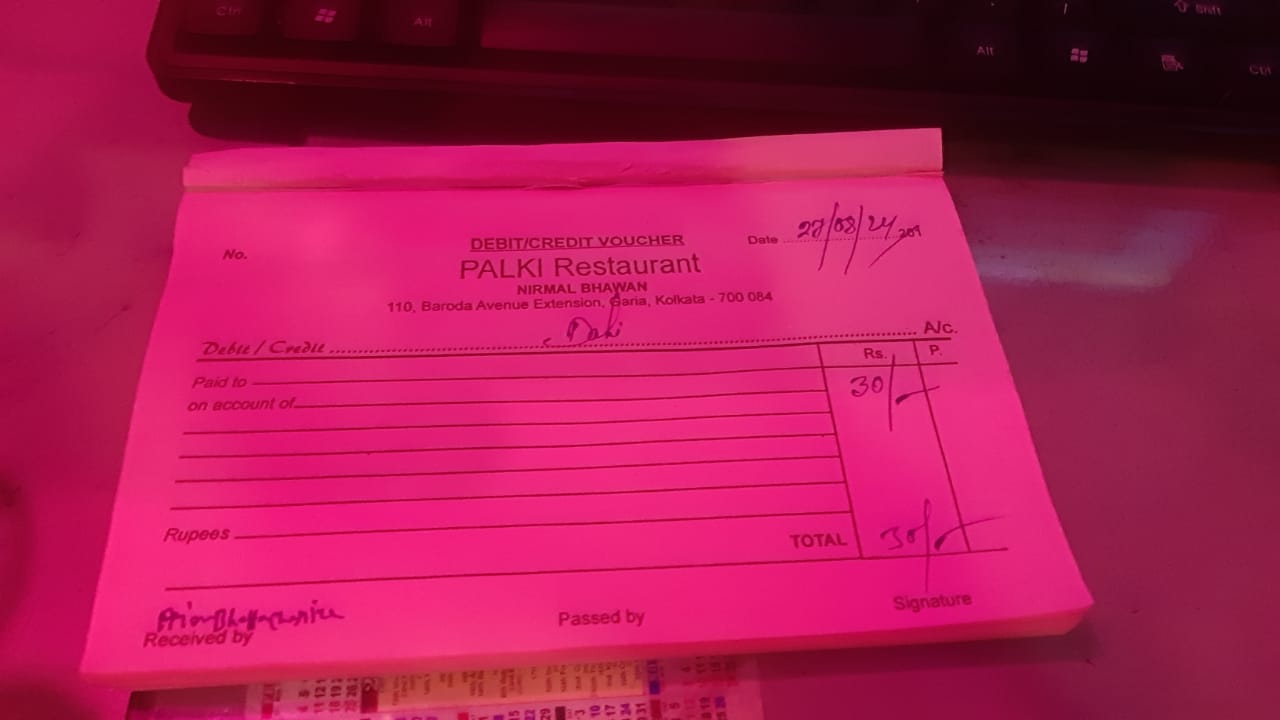 Ctrl Alt Alt Shift Ctrl
DEBIT/CREDIT VOUCHER
No. Date 27/08/24 201
PALKI Restaurant
NIRMAL BHAWAN
110, Baroda Avenue Extension, Garia, Kolkata - 700 084
Debit / Credit A/c.
Rs. P.
Paid to 30/-
on account of
Rupees TOTAL 30/-
Received by Passed by Signature